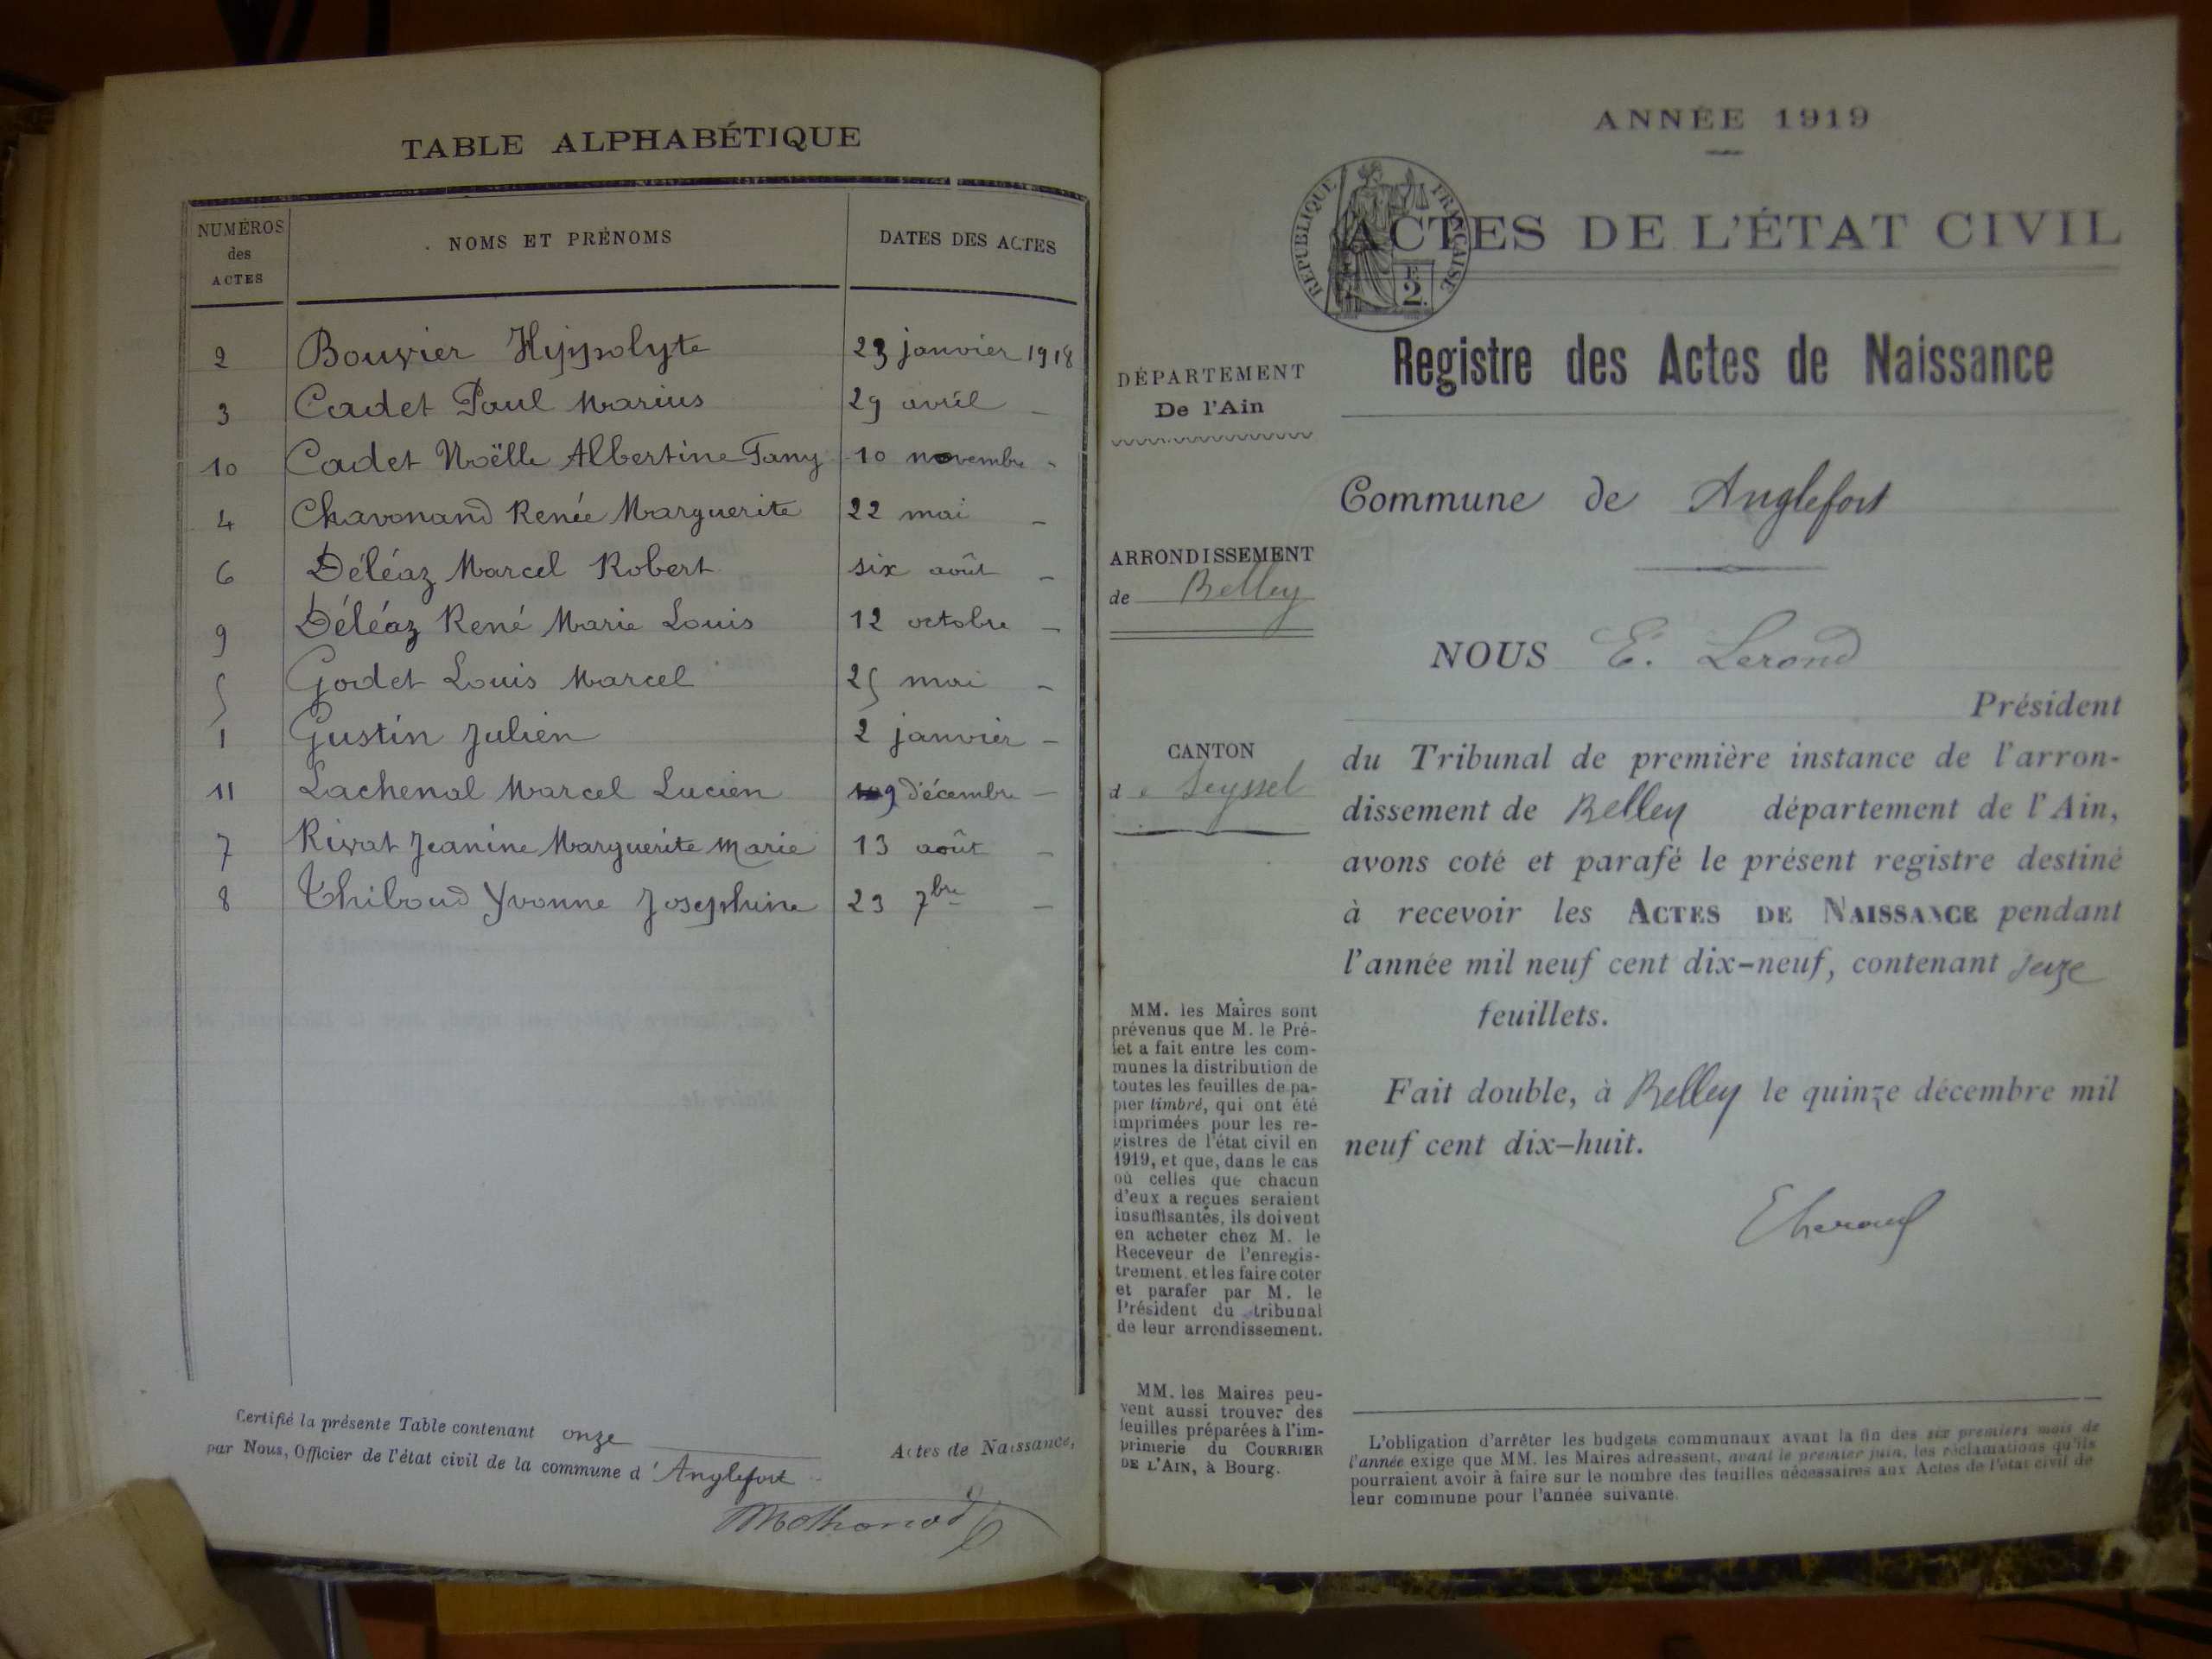 TABLE ALPHABÉTIQUE
NUMÉROS des ACTES
NOMS ET PRÉNOMS
DATES DES ACTES
2 Bouvier Hippolyte 23 janvier 1918
3 Cadet Paul Marius 29 avril -
10 Cadet Noëlle Albertine Fany 10 novembre -
4 Chavonand Renée Marguerite 22 mai -
6 Déléaz Marcel Robert six août -
9 Déléaz René Marie Louis 12 octobre -
5 Godet Louis Marcel 25 mai -
1 Gustin Julien 2 janvier -
11 Lachenal Marcel Lucien 9 décembre -
7 Rivat Jeanine Marguerite Marie 13 août -
8 Thiboud Yvonne Josephine 23 7bre -
Certifié la présente Table contenant onze Actes de Naissance,
par Nous, Officier de l'état civil de la commune d'Anglefort
ANNÉE 1919
RÉPUBLIQUE FRANÇAISE
2
ACTES DE L'ÉTAT CIVIL
Registre des Actes de Naissance
DÉPARTEMENT
De l'Ain
ARRONDISSEMENT
de Belley
CANTON
de Seyssel
MM. les Maires sont
prévenus que M. le Pré-
fet a fait entre les com-
munes la distribution de
toutes les feuilles de pa-
pier timbré, qui ont été
imprimées pour les re-
gistres de l'état civil en
1919, et que, dans le cas
où celles que chacun
d'eux a reçues seraient
insuffisantes, ils doivent
en acheter chez M. le
Receveur de l'enregis-
trement et les faire coter
et parafer par M. le
Président du tribunal
de leur arrondissement.
MM. les Maires peu-
vent aussi trouver des
feuilles préparées à l'im-
primerie du COURRIER
DE L'AIN, à Bourg.
Commune de Anglefort
NOUS E. Lerond
Président
du Tribunal de première instance de l'arron-
dissement de Belley département de l'Ain,
avons coté et parafé le présent registre destiné
à recevoir les ACTES DE NAISSANCE pendant
l'année mil neuf cent dix-neuf, contenant seize
feuillets.
Fait double, à Belley le quinze décembre mil
neuf cent dix-huit.
L'obligation d'arrêter les budgets communaux avant la fin des six premiers mois de
l'année exige que MM. les Maires adressent, avant le premier juin, les réclamations qu'ils
pourraient avoir à faire sur le nombre des feuilles nécessaires aux Actes de l'état civil de
leur commune pour l'année suivante.